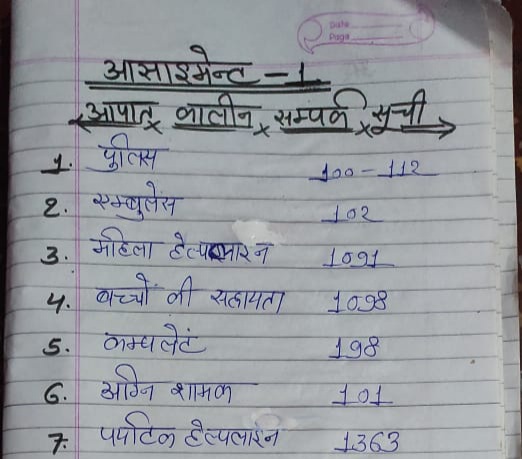 Date
Page
आसाइमेन्ट - 1
आपात कालीन सम्पर्क सूची
1. पुलिस 100 - 112
2. एम्बुलेंस 102
3. महिला हेल्पलाइन 1091
4. बच्चों की सहायता 1098
5. कम्पलेटं 198
6. अग्नि शामक 101
7. पर्यटिक हेल्पलाइन 1363